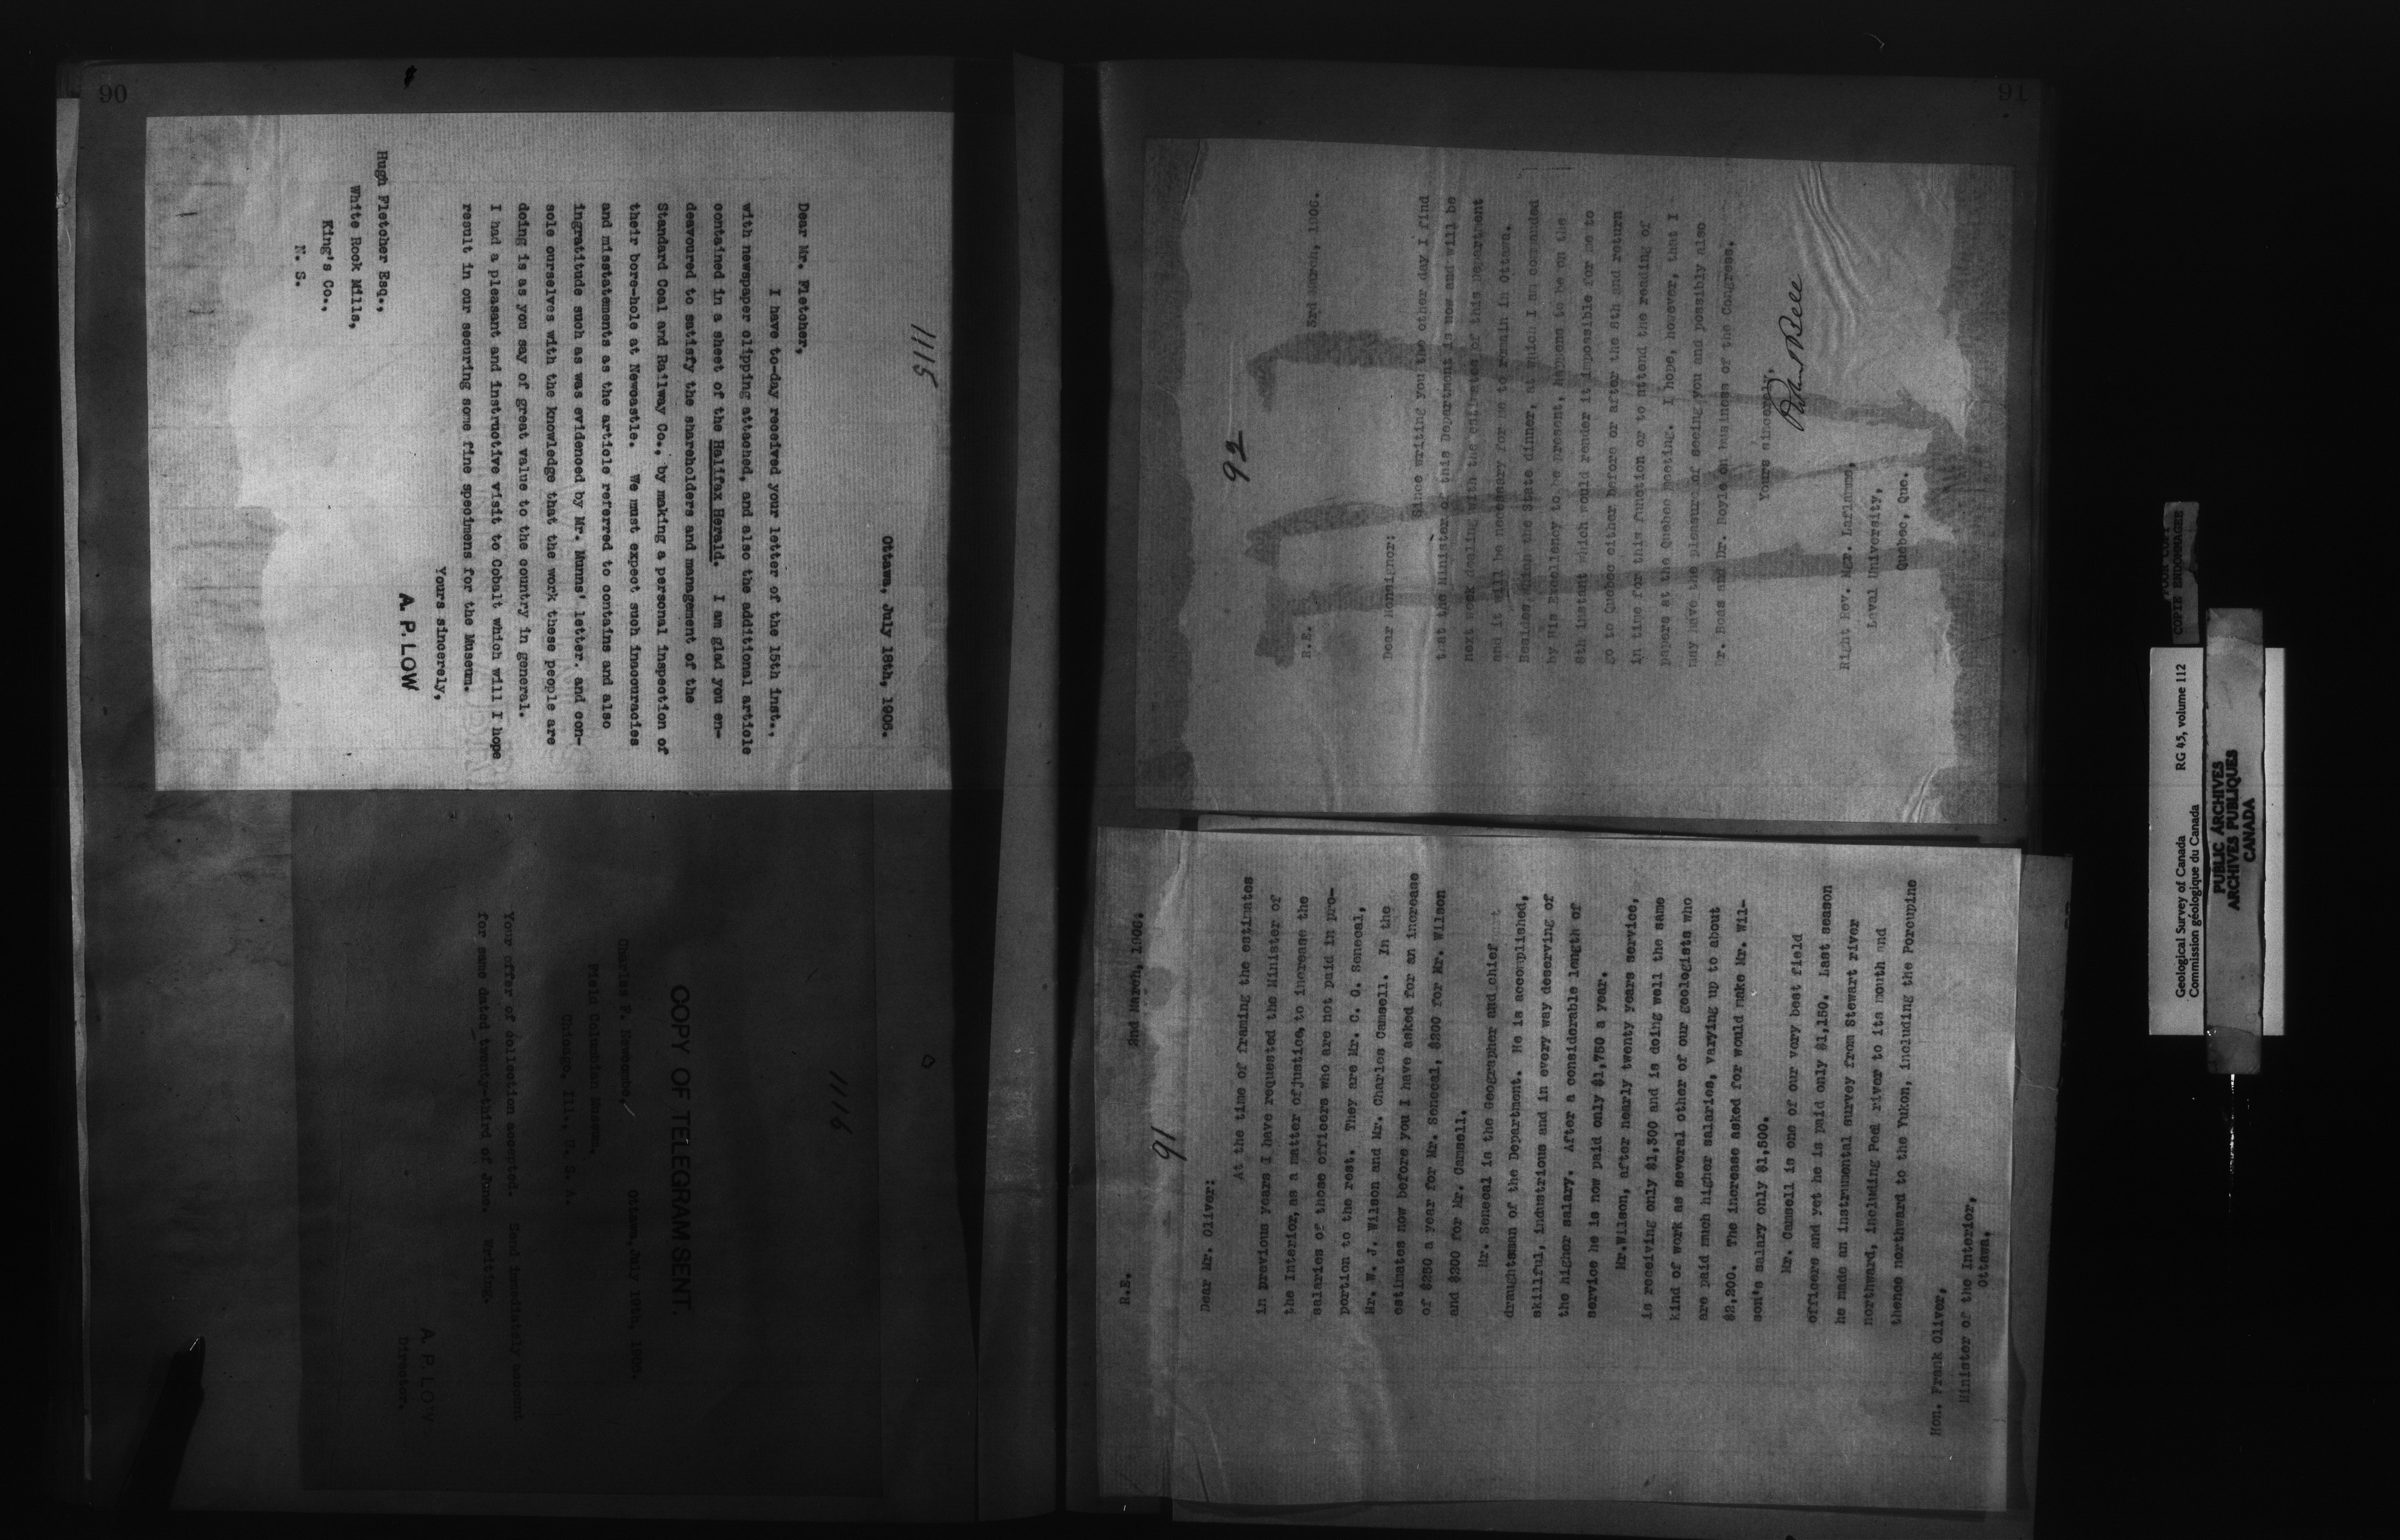 90
1115
Ottawa, July 18th, 1906.
Dear Mr. Fletcher,
I have to-day received your letter of the 15th inst.,
with newspaper clipping attached, and also the additional article
contained in a sheet of the Halifax Herald. I am glad you en-
deavoured to satisfy the shareholders and management of the
Standard Coal and Railway Co., by making a personal inspection of
their bore-hole at Newcastle. We must expect such inaccuracies
and misstatements as the article referred to contains and also
ingratitude such as was evidenced by Mr. Munns' letter. and con-
sole ourselves with the knowledge that the work these people are
doing is as you say of great value to the country in general.
I had a pleasant and instructive visit to Cobalt which will I hope
result in our securing some fine specimens for the Museum.
Yours sincerely,
A. P. LOW
Hugh Fletcher Esq.,
White Rock Mills,
King's Co.,
N. S.
1116
COPY OF TELEGRAM SENT.
Ottawa, July 18th, 1906.
Charles F. Newcombe,
Field Columbian Museum.
Chicago, Ill., U. S. A.
Your offer of collection accepted. Send immediately account
for same dated twenty-third of June. Writing.
A. P. LOW
Director.
91
92
R.E.
3rd March, 1906.
Dear Monsignor:
Since writing you the other day I find
that the Minister of this Department is now and will be
next week dealing with the estimates of this Department
and it will be necessary for me to remain in Ottawa.
Besides which the State dinner, at which I am commanded
by His Excellency to be present, happens to be on the
8th instant which would render it impossible for me to
go to Quebec either before or after the 8th and return
in time for this function or to attend the reading of
papers at the Quebec meeting. I hope, however, that I
may have the pleasure of seeing you and possibly also
Dr. Boas and Dr. Boyle on business of the Congress.
Yours sincerely,
Robert Bell
Right Rev. Mgr. Laflamme,
Laval University,
Quebec, Que.
91
R.E.
2nd March, 1906.
Dear Mr. Oliver:
At the time of framing the estimates
in previous years I have requested the Minister of
the Interior, as a matter of justice, to increase the
salaries of those officers who are not paid in pro-
portion to the rest. They are Mr. C. O. Senecal,
Mr. W. J. Wilson and Mr. Charles Camsell. In the
estimates now before you I have asked for an increase
of $250 a year for Mr. Senecal, $200 for Mr. Wilson
and $200 for Mr. Camsell.
Mr. Senecal is the Geographer and chief
draughtsman of the Department. He is accomplished,
skillful, industrious and in every way deserving of
the higher salary. After a considerable length of
service he is now paid only $1,750 a year.
Mr.Wilson, after nearly twenty years service,
is receiving only $1,300 and is doing well the same
kind of work as several other of our geologists who
are paid much higher salaries, varying up to about
$2,200. The increase asked for would make Mr. Wil-
son's salary only $1,500.
Mr. Camsell is one of our very best field
officers and yet he is paid only $1,150. Last season
he made an instrumental survey from Stewart river
northward, including Peel river to its mouth and
thence northward to the Yukon, including the Porcupine
Hon. Frank Oliver,
Minister of the Interior,
Ottawa.
POOR COPY
COPIE ENDOMMAGEE
Geological Survey of Canada RG 45, volume 112
Commission géologique du Canada
PUBLIC ARCHIVES
ARCHIVES PUBLIQUES
CANADA